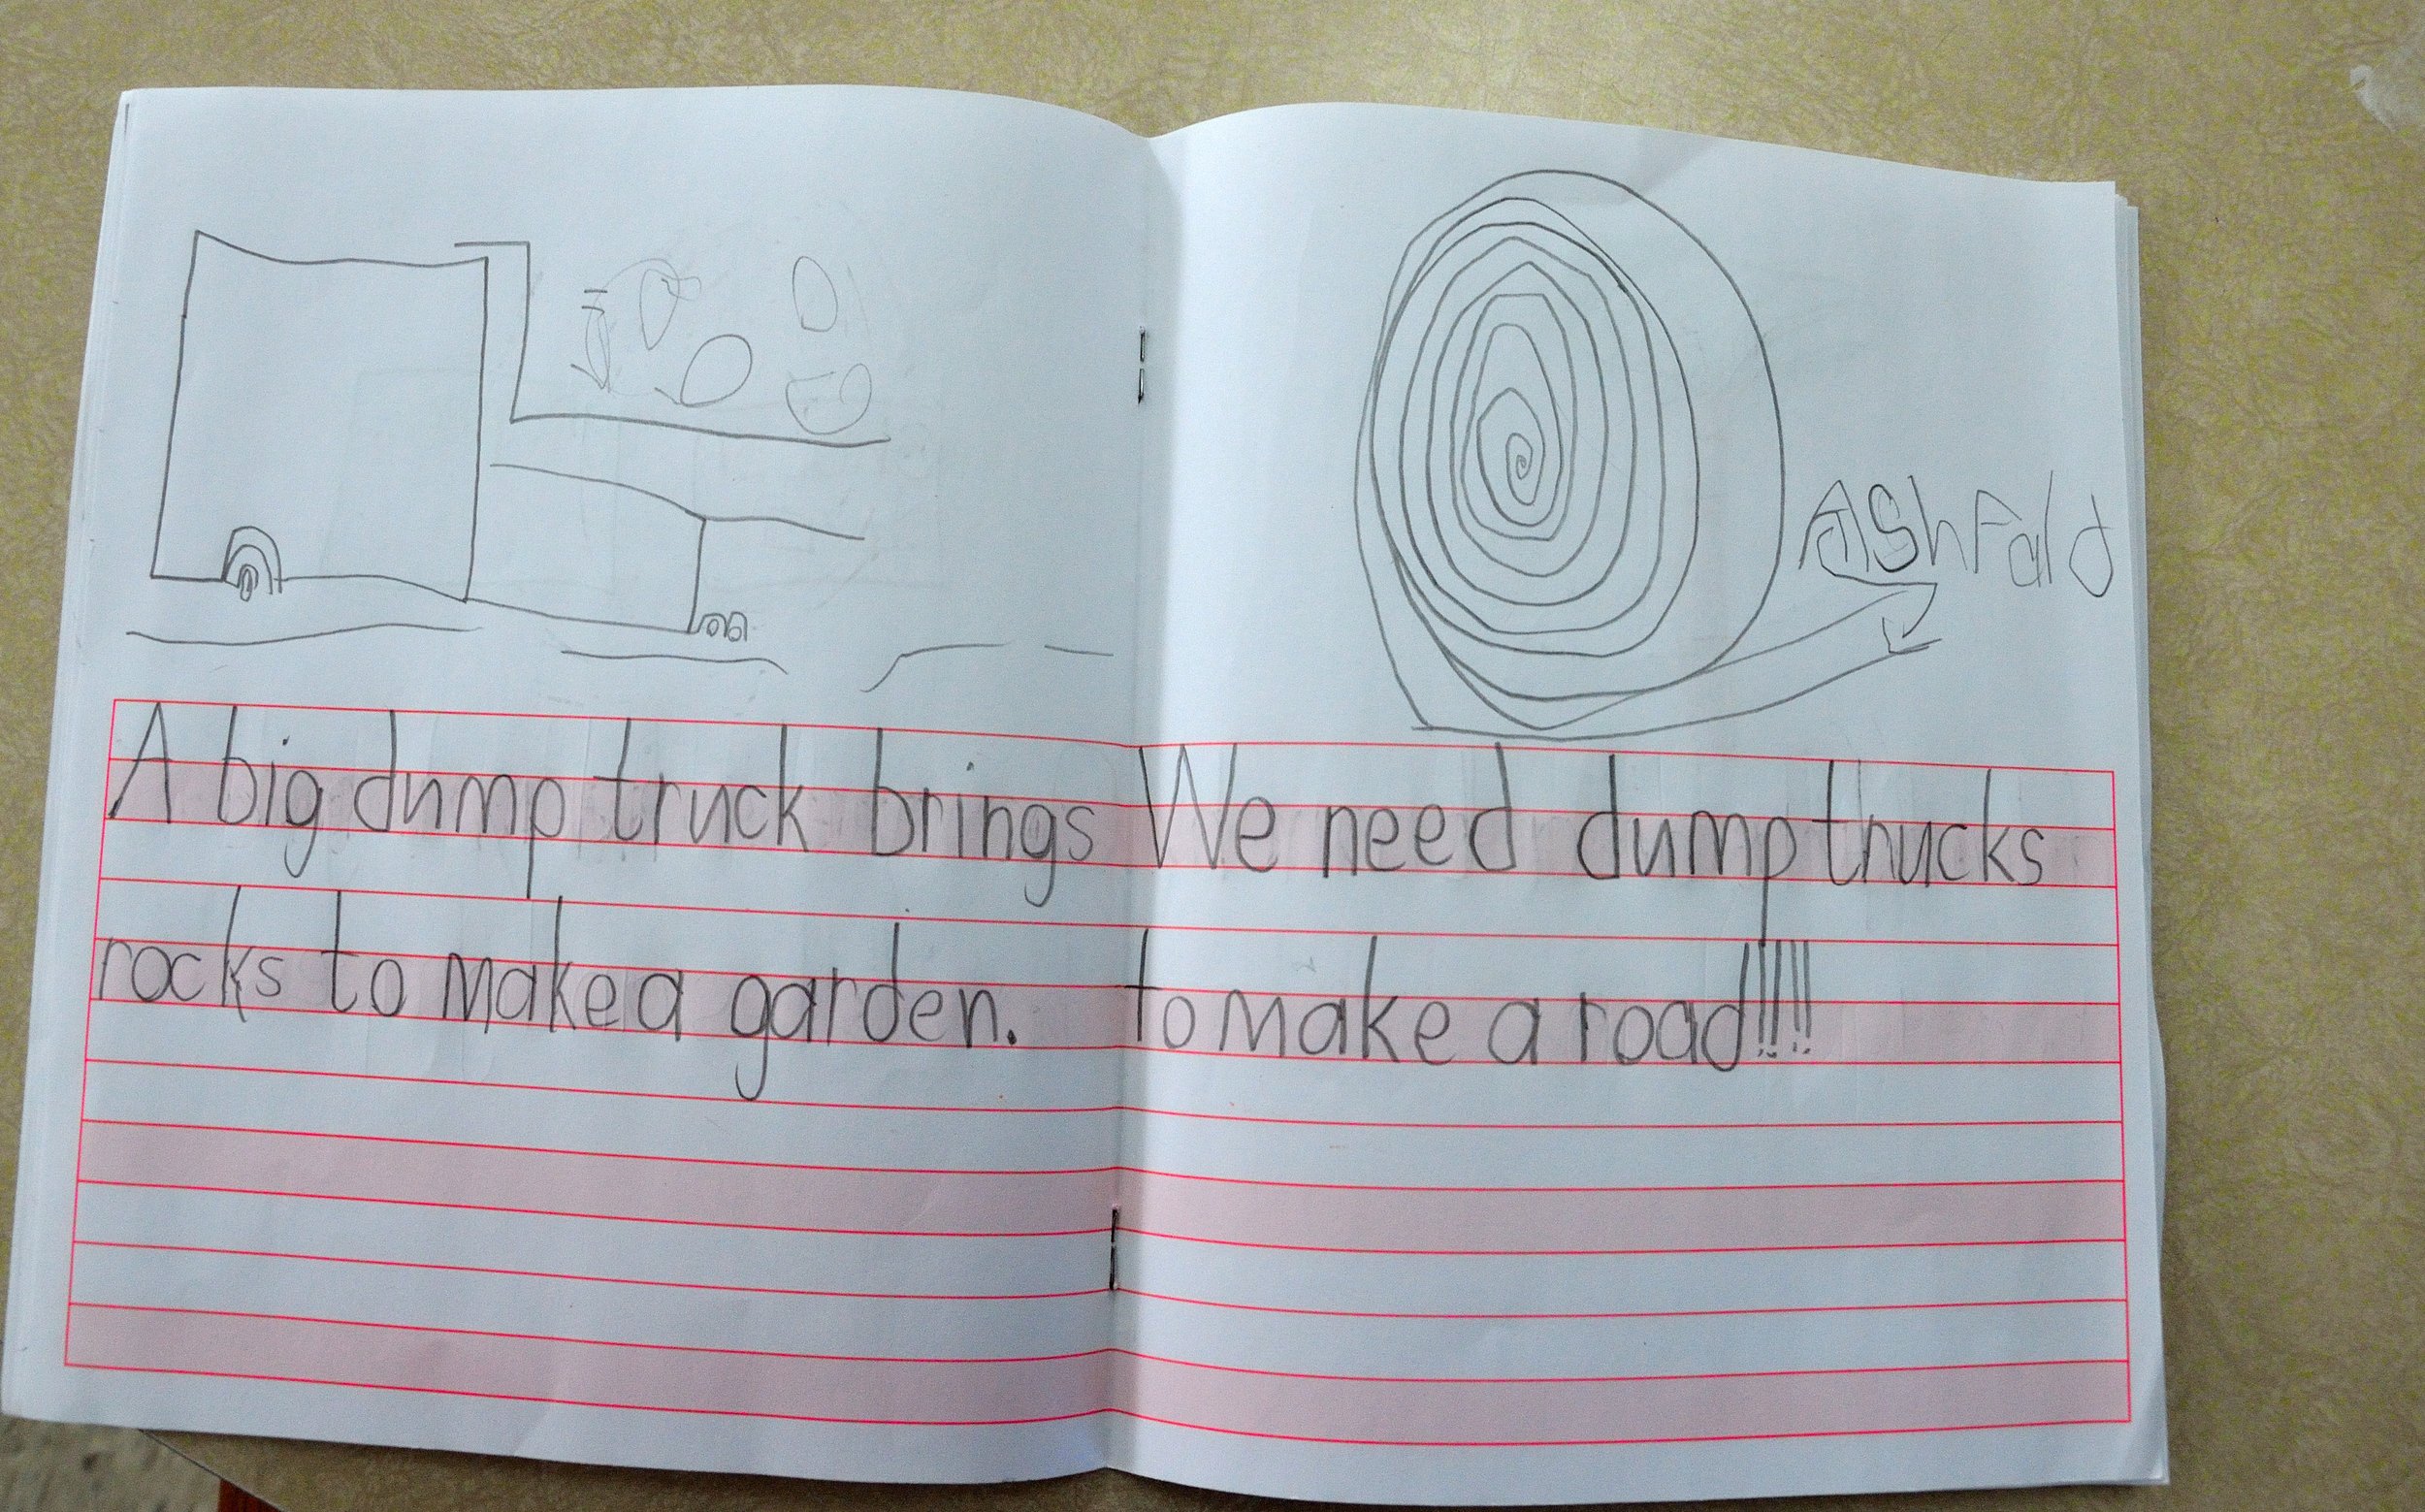 A big dump truck brings
rocks to make a garden.
AShFald
We need dump trucks
to make a road!!!!